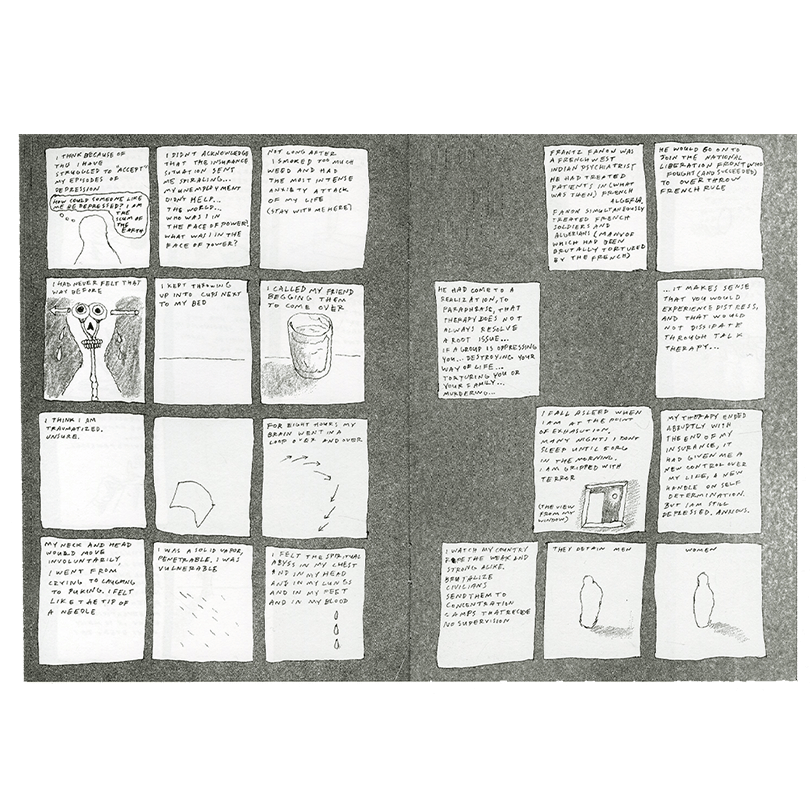 I THINK BECAUSE OF
THIS I HAVE
STRUGGLED TO "ACCEPT"
MY EPISODES OF
DEPRESSION
HOW COULD SOMEONE LIKE
ME BE DEPRESSED? I AM
THE
SCUM OF
THE
EARTH
I DIDN'T ACKNOWLEDGE
THAT THE INSURANCE
SITUATION SENT
ME SPIRALING...
MY UNEMPLOYMENT
DIDN'T HELP...
THE WORLD...
WHO WAS I IN
THE FACE OF POWER?
WHAT WAS I IN THE
FACE OF POWER?
NOT LONG AFTER
I SMOKED TOO MUCH
WEED AND HAD
THE MOST INTENSE
ANXIETY ATTACK
OF MY LIFE
(STAY WITH ME HERE)
I HAD NEVER FELT THAT
WAY BEFORE
I KEPT THROWING
UP INTO CUPS NEXT
TO MY BED
I CALLED MY FRIEND
BEGGING THEM
TO COME OVER
I THINK I AM
TRAUMATIZED.
UNSURE.
FOR EIGHT HOURS MY
BRAIN WENT IN A
LOOP OVER AND OVER
MY NECK AND HEAD
WOULD MOVE
INVOLUNTARILY,
I WENT FROM
CRYING TO LAUGHING
TO PUKING. I FELT
LIKE THE TIP OF
A NEEDLE
I WAS A SOLID VAPOR,
PENETRABLE, I WAS
VULNERABLE
I FELT THE SPIRITUAL
ABYSS IN MY CHEST
AND IN MY HEAD
AND IN MY LUNGS
AND IN MY FEET
AND IN MY BLOOD
FRANTZ FANON WAS
A FRENCH WEST
INDIAN PSYCHIATRIST
HE HAD TREATED
PATIENTS IN (WHAT
WAS THEN) FRENCH
ALGERIA.
FANON SIMULTANEOUSLY
TREATED FRENCH
SOLDIERS AND
ALGERIANS (MANY OF
WHICH HAD BEEN
BRUTALLY TORTURED
BY THE FRENCH)
HE WOULD GO ON TO
JOIN THE NATIONAL
LIBERATION FRONT WHO
FOUGHT (AND SUCCEEDED)
TO OVERTHROW
FRENCH RULE
HE HAD COME TO A
REALIZATION, TO
PARAPHRASE, THAT
THERAPY DOES NOT
ALWAYS RESOLVE
A ROOT ISSUE...
IF A GROUP IS OPPRESSING
YOU... DESTROYING YOUR
WAY OF LIFE...
TORTURING YOU OR
YOUR FAMILY...
MURDERING...
...IT MAKES SENSE
THAT YOU WOULD
EXPERIENCE DISTRESS,
AND THAT WOULD
NOT DISSIPATE
THROUGH TALK
THERAPY...
I FALL ASLEEP WHEN
I AM AT THE POINT
OF EXHAUSTION.
MANY NIGHTS I DON'T
SLEEP UNTIL 5 OR 6
IN THE MORNING.
I AM GRIPPED WITH
TERROR
(THE VIEW
FROM MY
WINDOW)
MY THERAPY ENDED
ABRUPTLY WITH
THE END OF MY
INSURANCE, IT
HAD GIVEN ME A
NEW CONTROL OVER
MY LIFE, A NEW
HANDLE ON SELF
DETERMINATION.
BUT I AM STILL
DEPRESSED. ANXIOUS.
I WATCH MY COUNTRY
THE WEAK AND
STRONG ALIKE,
BRUTALIZE
CIVILIANS
SEND THEM TO
CONCENTRATION
CAMPS THAT RECEIVE
NO SUPERVISION
THEY DETAIN MEN
WOMEN